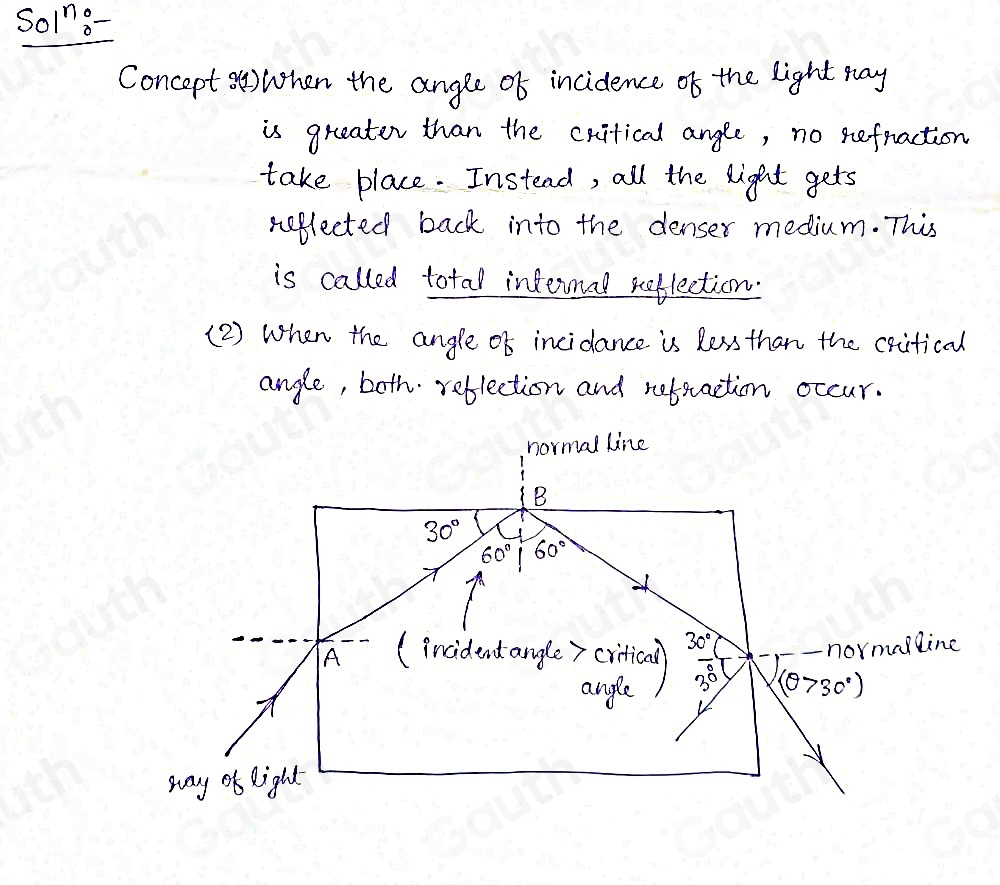 Solⁿ:-
Concept :(1) When the angle of incidence of the light ray
is greater than the critical angle, no refraction
take place. Instead, all the light gets
reflected back into the denser medium. This
is called total internal reflection.
(2) When the angle of incidance is less than the critical
angle, both. reflection and refraction occur.
normal line
B
30°
60° 60°
A
(incident angle > critical
angle)
30°
30°
normal line
(θ>30°)
ray of light
Gauth